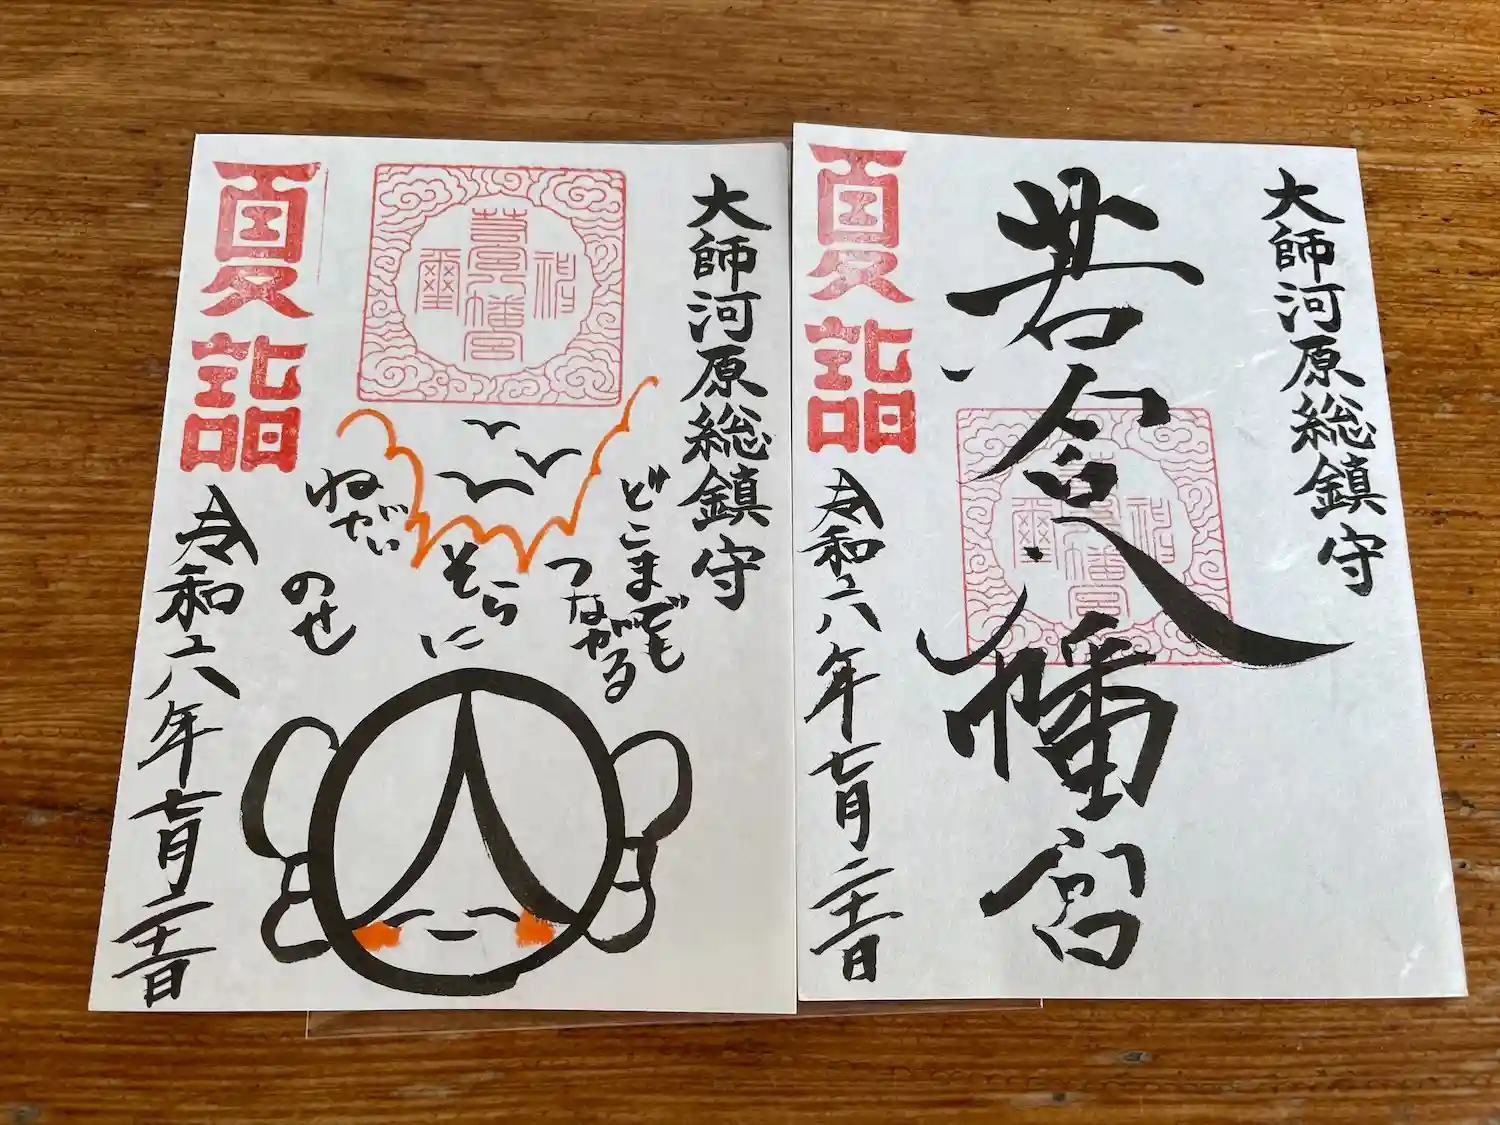 大師河原総鎮守
どこまでも
つながる
そらに
ねがい
のせ
若宮八幡宮
夏詣
令和六年七月二十一日
大師河原総鎮守
若宮八幡宮
夏詣
令和六年七月二十一日